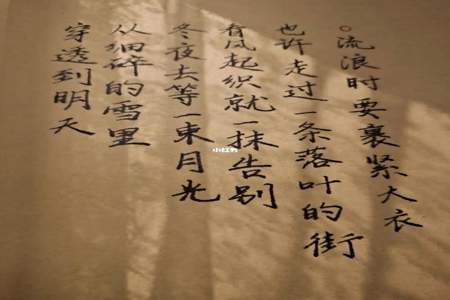 。流浪时要裹紧大衣
也许走过一条落叶的街
有风起织就一抹告别
冬夜去等一束月光
从细碎的雪里
穿透到明天
小红书